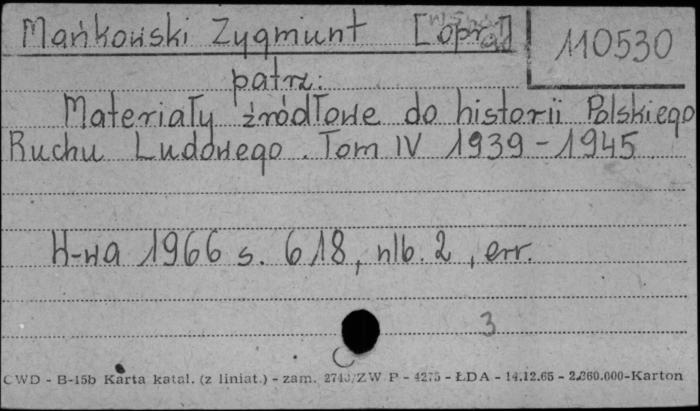 Mańkowski Zygmunt [oprac.]
110530
patrz:
Materiały źródłowe do historii Polskiego
Ruchu Ludowego. Tom IV 1939-1945
W-wa 1966 s. 618, nlb. 2, err.
3
CWD - B-15b Karta katal. (z liniat.) - zam. /ZW P - 4275 - ŁDA - 14.12.65 - 2.260.000-Karton